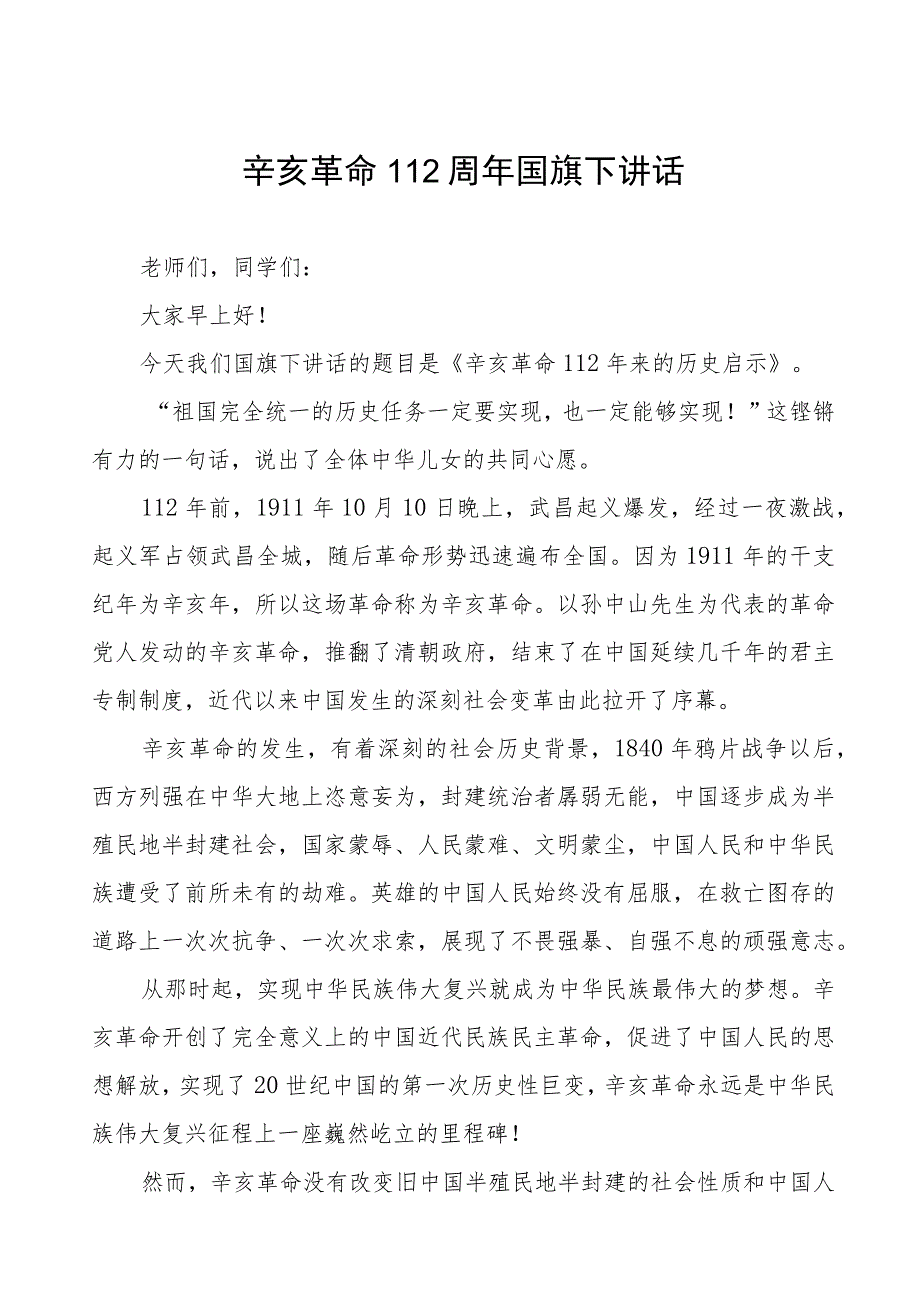 辛亥革命112周年国旗下讲话
老师们，同学们：
大家早上好！
今天我们国旗下讲话的题目是《辛亥革命112年来的历史启示》。
“祖国完全统一的历史任务一定要实现，也一定能够实现！”这铿锵
有力的一句话，说出了全体中华儿女的共同心愿。
112年前，1911年10月10日晚上，武昌起义爆发，经过一夜激战，
起义军占领武昌全城，随后革命形势迅速遍布全国。因为1911年的干支
纪年为辛亥年，所以这场革命称为辛亥革命。以孙中山先生为代表的革命
党人发动的辛亥革命，推翻了清朝政府，结束了在中国延续几千年的君主
专制制度，近代以来中国发生的深刻社会变革由此拉开了序幕。
辛亥革命的发生，有着深刻的社会历史背景，1840年鸦片战争以后，
西方列强在中华大地上恣意妄为，封建统治者孱弱无能，中国逐步成为半
殖民地半封建社会，国家蒙辱、人民蒙难、文明蒙尘，中国人民和中华民
族遭受了前所未有的劫难。英雄的中国人民始终没有屈服，在救亡图存的
道路上一次次抗争、一次次求索，展现了不畏强暴、自强不息的顽强意志。
从那时起，实现中华民族伟大复兴就成为中华民族最伟大的梦想。辛
亥革命开创了完全意义上的中国近代民族民主革命，促进了中国人民的思
想解放，实现了20世纪中国的第一次历史性巨变，辛亥革命永远是中华民
族伟大复兴征程上一座巍然屹立的里程碑！
然而，辛亥革命没有改变旧中国半殖民地半封建的社会性质和中国人